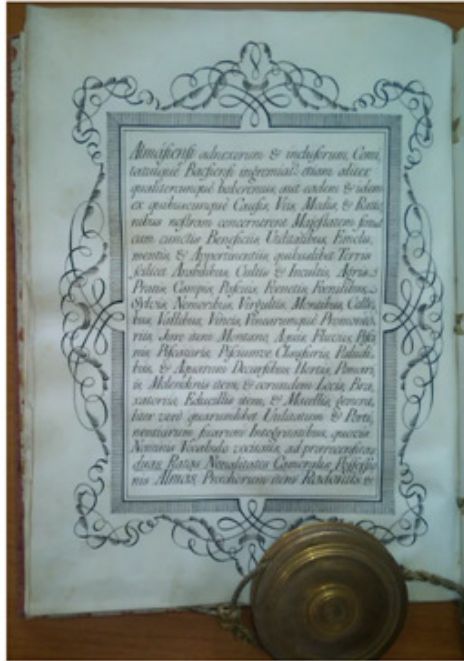 Almásiensi adnexorum & inclusorum, Comi
tatuiquè Bacsiensi ingremiat: etiam aliter
qualitercunquè haberemus, aut eadem & idem
ex quibuscunquè Causis, Viis, Modis, & Ratio
nibus nostram concernerent Majestatem simul
cum cunctis Beneficiis, Utilitatibus, Emolu
mentis, & Appertinentiis, quibuslibet Terris
scilicet Arabilibus, Cultis & Incultis, Agris
Pratis, Campis, Pascuis, Fœnetis, Fœnilibus,
Sylvis, Nemoribus, Virgultis, Montibus, Colli
bus, Vallibus, Vineis, Vinearumquè Promonto
riis, Jure item Montano, Aquis, Fluviis, Pisci
nis, Piscaturis, Clausuris, Paludi
bus, & Aquarum Decursibus, Hortis, Pomari
is, Molendinis item, & eorundem Locis, Bra
xatoriis, Educillis item, & Macellis, genera
liter verò quarumlibet Utilitatum & Perti
nentiarum suarum Integritatibus, quovis
Nominis Vocabulo vocitatis, ad
duas Nonalitates Camerales, Possessio
nis Almás, Prædiorum item &